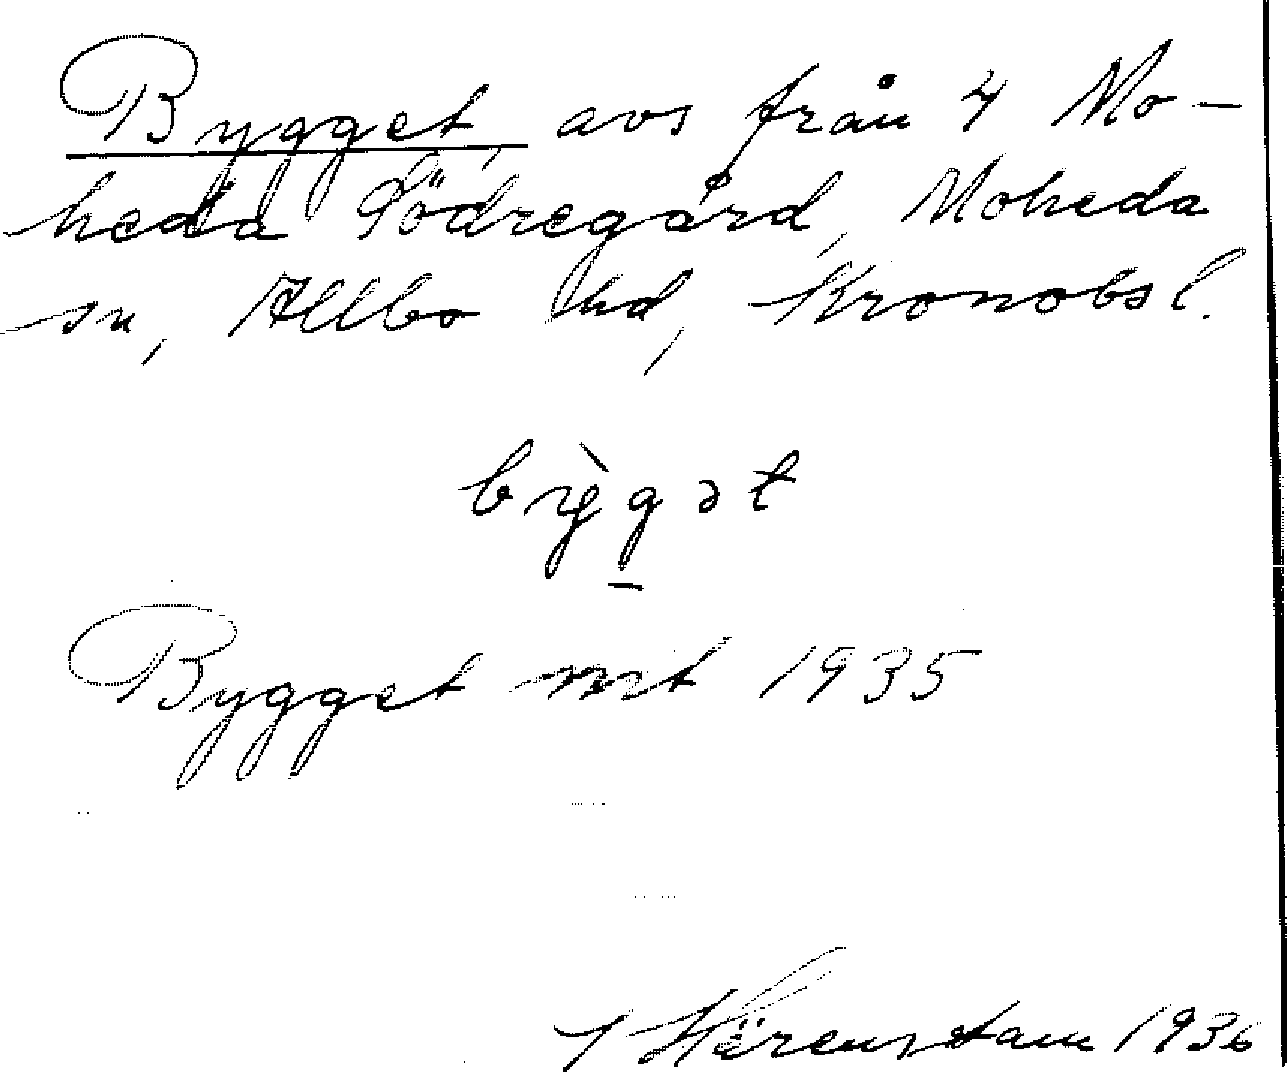 Bygget, avs från 4 Mo-
heda Södregård, Moheda
sn, Allbo hd, Kronobs l.
bỳgət
Bygget mt 1935
Härenstam 1936